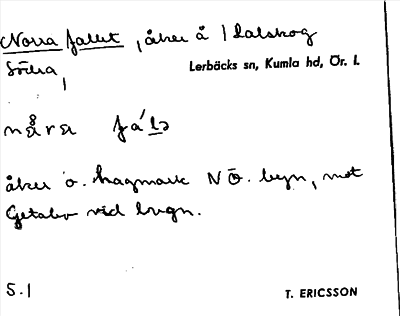 Norra fallet, åker å 1 Dalskog
Södra,
Lerbäcks sn, Kumla hd, Ör. l.
åker o. hagmark N Ö. byn, mot
Getabo vid lugn.
5.1
T. ERICSSON